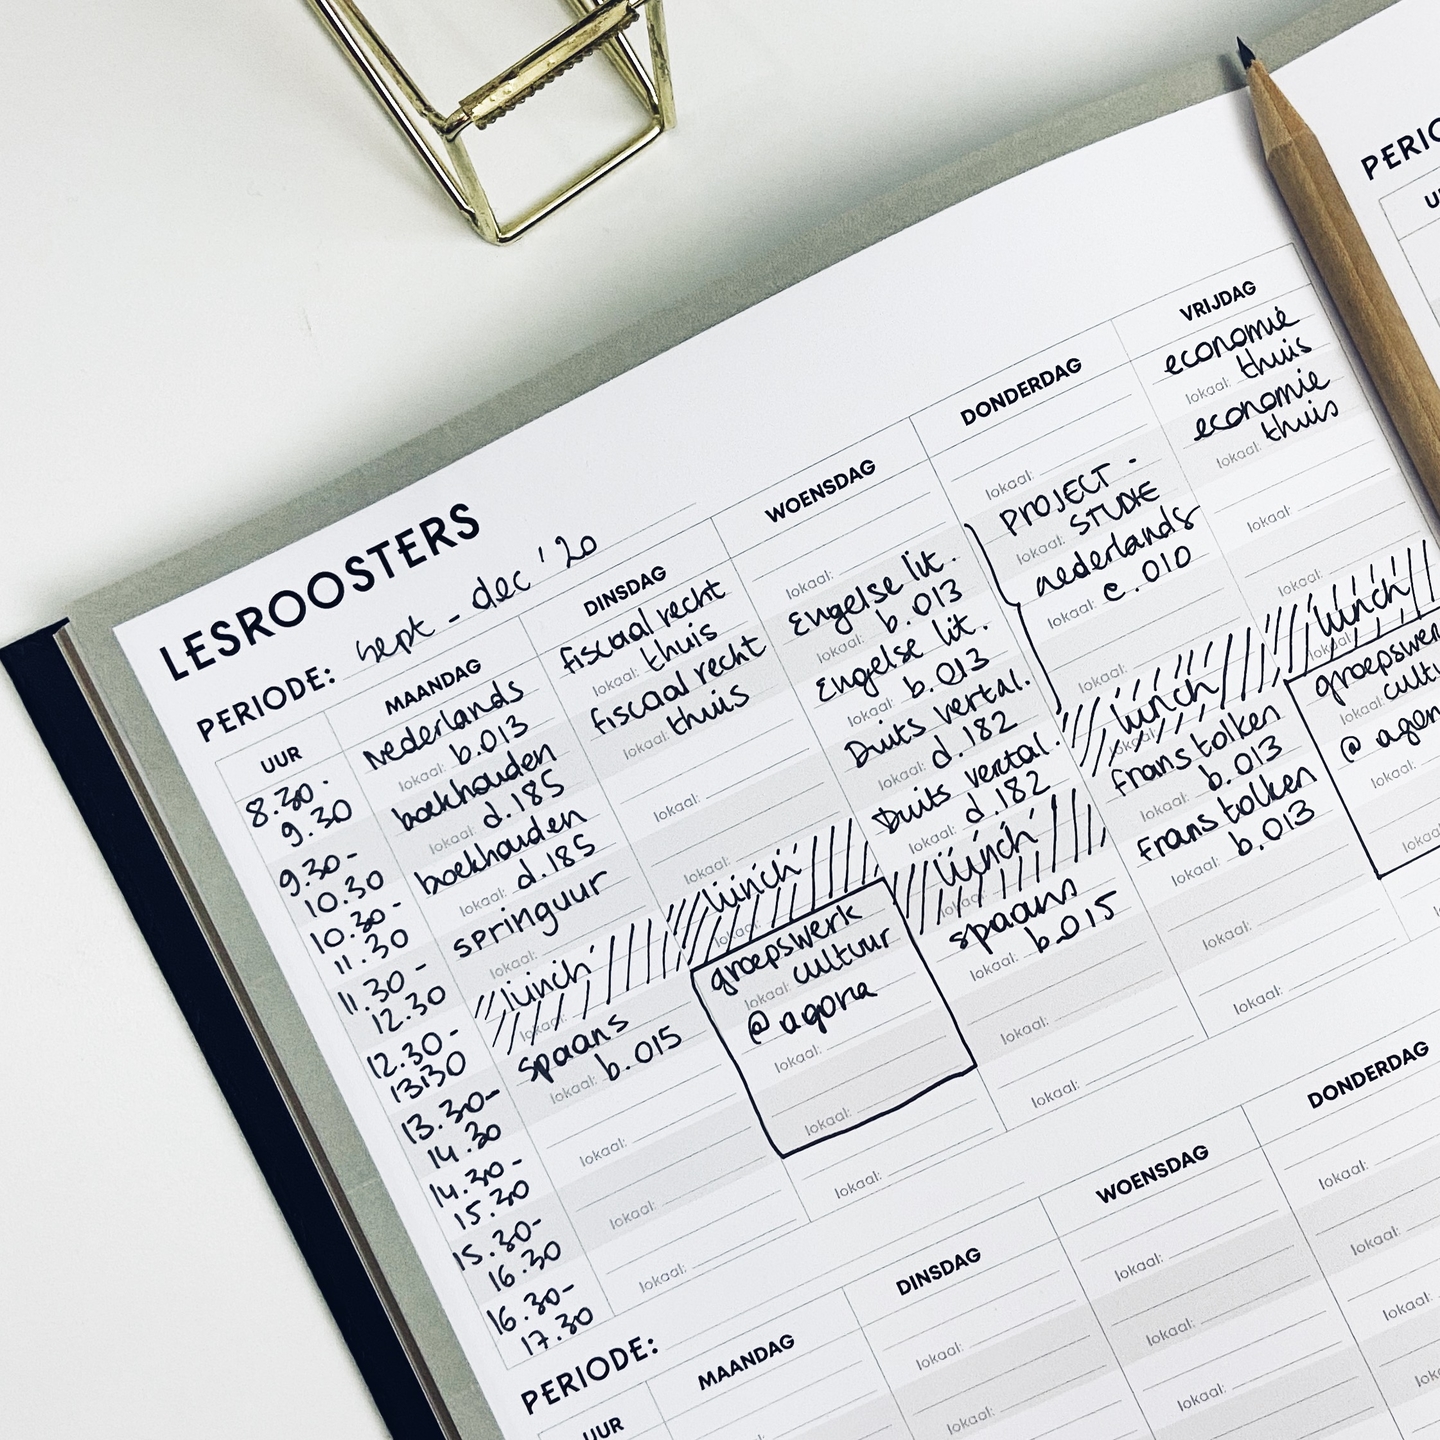 LESROOSTERS
PERIODE: sept - dec '20
UUR
8.30-
9.30
9.30-
10.30
10.30-
11.30
11.30-
12.30
12.30-
13:30
13.30-
14.30
14.30-
15.30
15.30-
16.30
16.30-
17.30
MAANDAG
Nederlands
lokaal: b.013
boekhouden
lokaal: d.185
boekhouden
lokaal: d.185
springuur
lokaal:
lunch
lokaal:
spaans
lokaal: b.015
lokaal:
lokaal:
lokaal:
DINSDAG
fiscaal recht
lokaal: thuis
fiscaal recht
lokaal: thuis
lokaal:
lokaal:
lunch
lokaal:
groepswerk
lokaal: cultuur
@ agora
lokaal:
lokaal:
lokaal:
WOENSDAG
lokaal:
Engelse lit.
lokaal: b.013
Engelse lit.
lokaal: b.013
Duits vertal.
lokaal: d.182
Duits vertal.
lokaal: d.182
lunch
lokaal:
spaans
lokaal: b.015
lokaal:
lokaal:
DONDERDAG
lokaal:
PROJECT -
lokaal: STUDIE
nederlands
lokaal: c.010
lokaal:
lunch
lokaal:
frans tolken
lokaal: b.013
Frans tolken
lokaal: b.013
lokaal:
lokaal:
VRIJDAG
economie
lokaal: thuis
economie
lokaal: thuis
lokaal:
lokaal:
lunch
lokaal:
groepswer
lokaal: cultu
@ agor
lokaal:
lokaal:
PERIODE:
UUR
MAANDAG
DINSDAG
lokaal:
lokaal:
WOENSDAG
lokaal:
lokaal:
lokaal:
DONDERDAG
lokaal:
lokaal:
lokaal:
PERIO
U